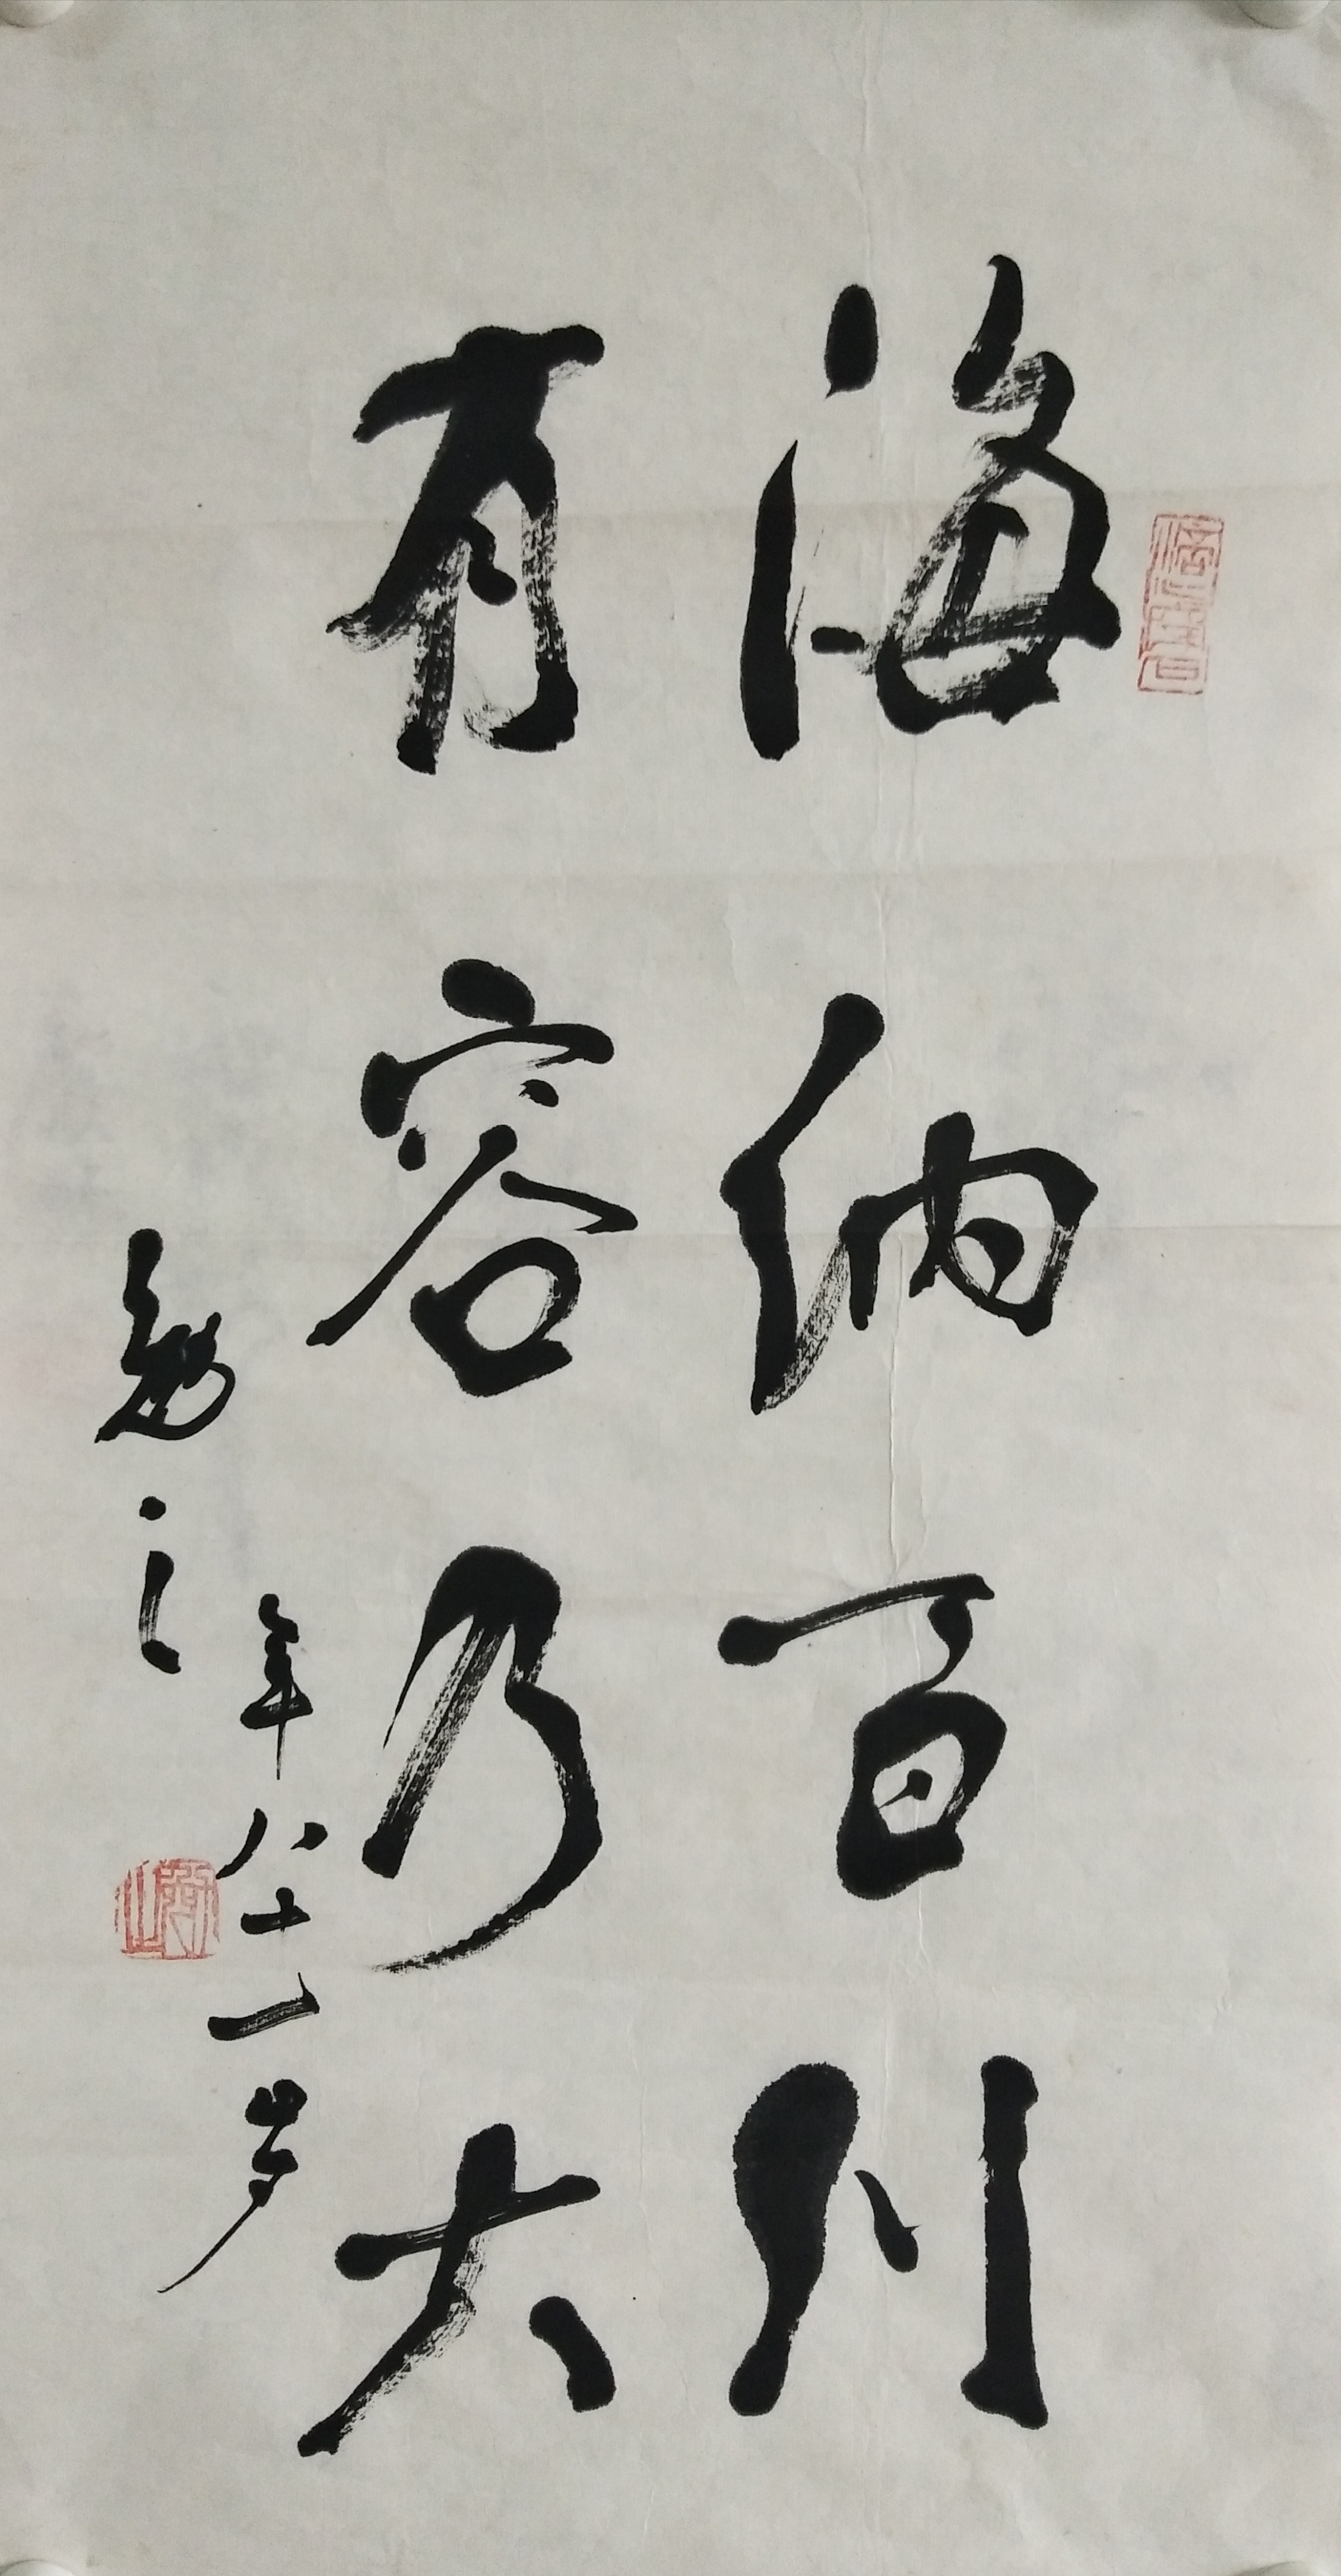 海纳百川
有容乃大
年八十一岁
勉之